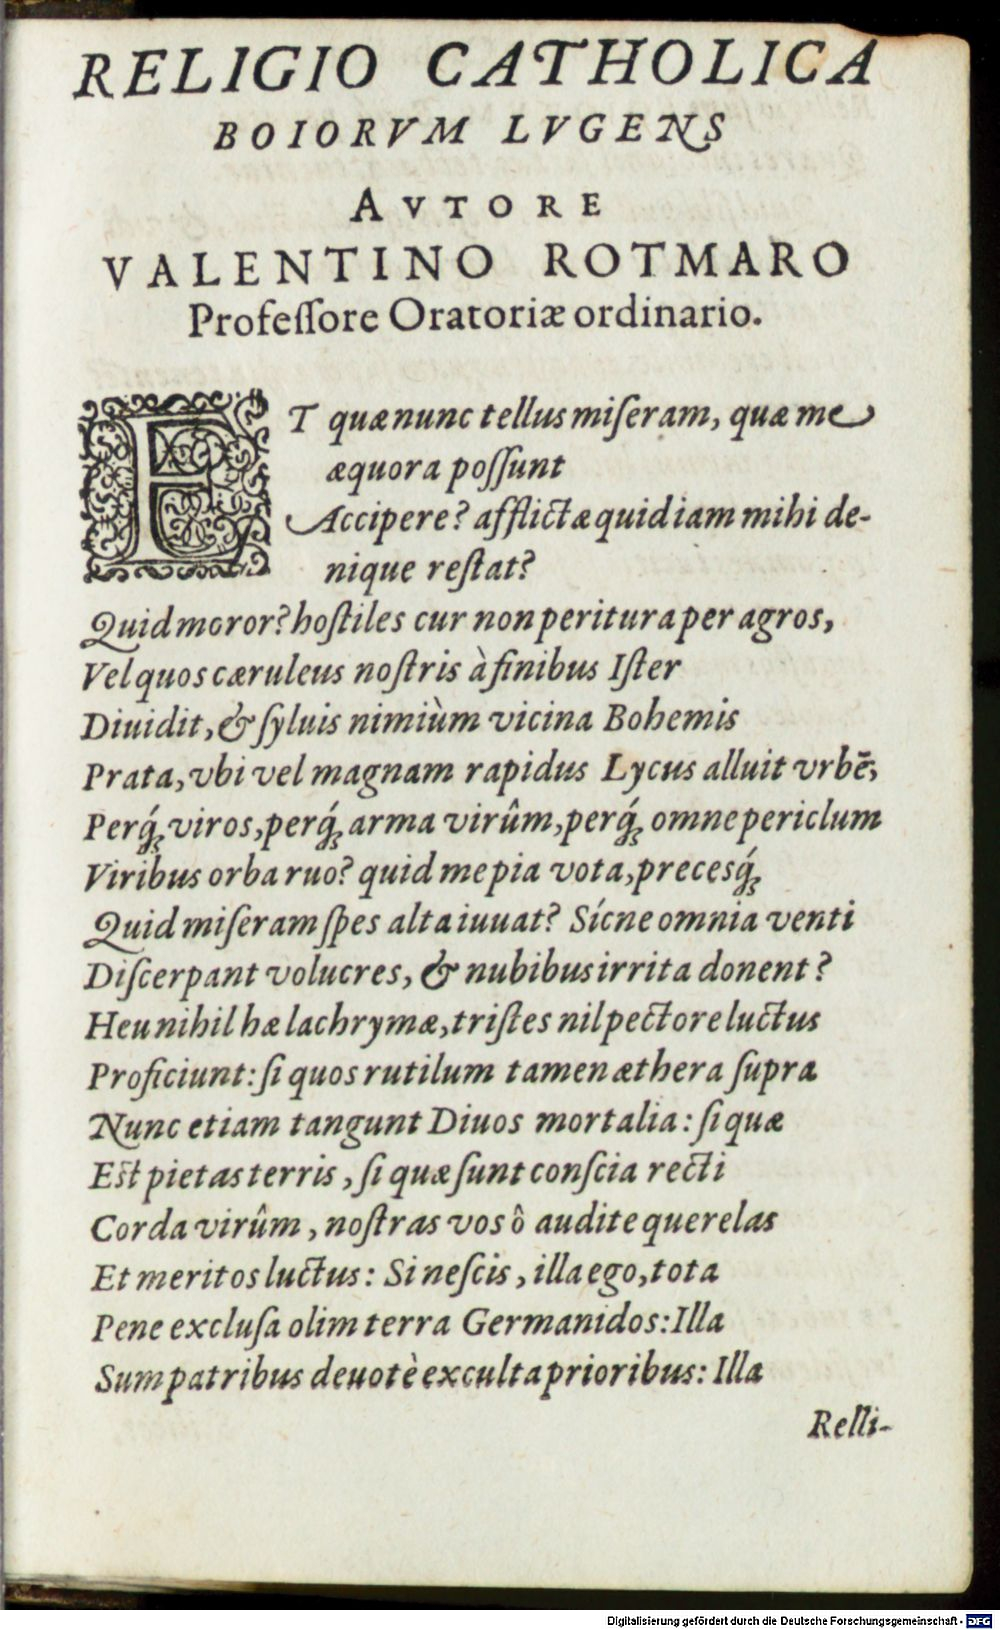 RELIGIO CATHOLICA
BOIORVM LVGENS
AVTORE
VALENTINO ROTMARO
Professore Oratoriæ ordinario.
ET quæ nunc tellus miseram, quæ me
æquora possunt
Accipere? afflictæ quid iam mihi de-
nique restat?
Quid moror? hostiles cur non peritura per agros,
Vel quos cæruleus nostris à finibus Ister
Diuidit, & syluis nimiùm vicina Bohemis
Prata, vbi vel magnam rapidus Lycus alluit vrbē,
Perq́ꝫ viros, perq́ꝫ arma virûm, perq́ꝫ omne periclum
Viribus orba ruo? quid me pia vota, precesq́ꝫ
Quid miseram spes alta iuuat? Sícne omnia venti
Discerpant volucres, & nubibus irrita donent?
Heu nihil hæ lachrymæ, tristes nil pectore luctus
Proficiunt: si quos rutilum tamen æthera supra
Nunc etiam tangunt Diuos mortalia: si quæ
Est pietas terris, si quæ sunt conscia recti
Corda virûm, nostras vos ô audite querelas
Et meritos luctus: Si nescis, illa ego, tota
Pene exclusa olim terra Germanidos: Illa
Sum patribus deuotè exculta prioribus: Illa
Relli-
Digitalisierung gefördert durch die Deutsche Forschungsgemeinschaft - DFG